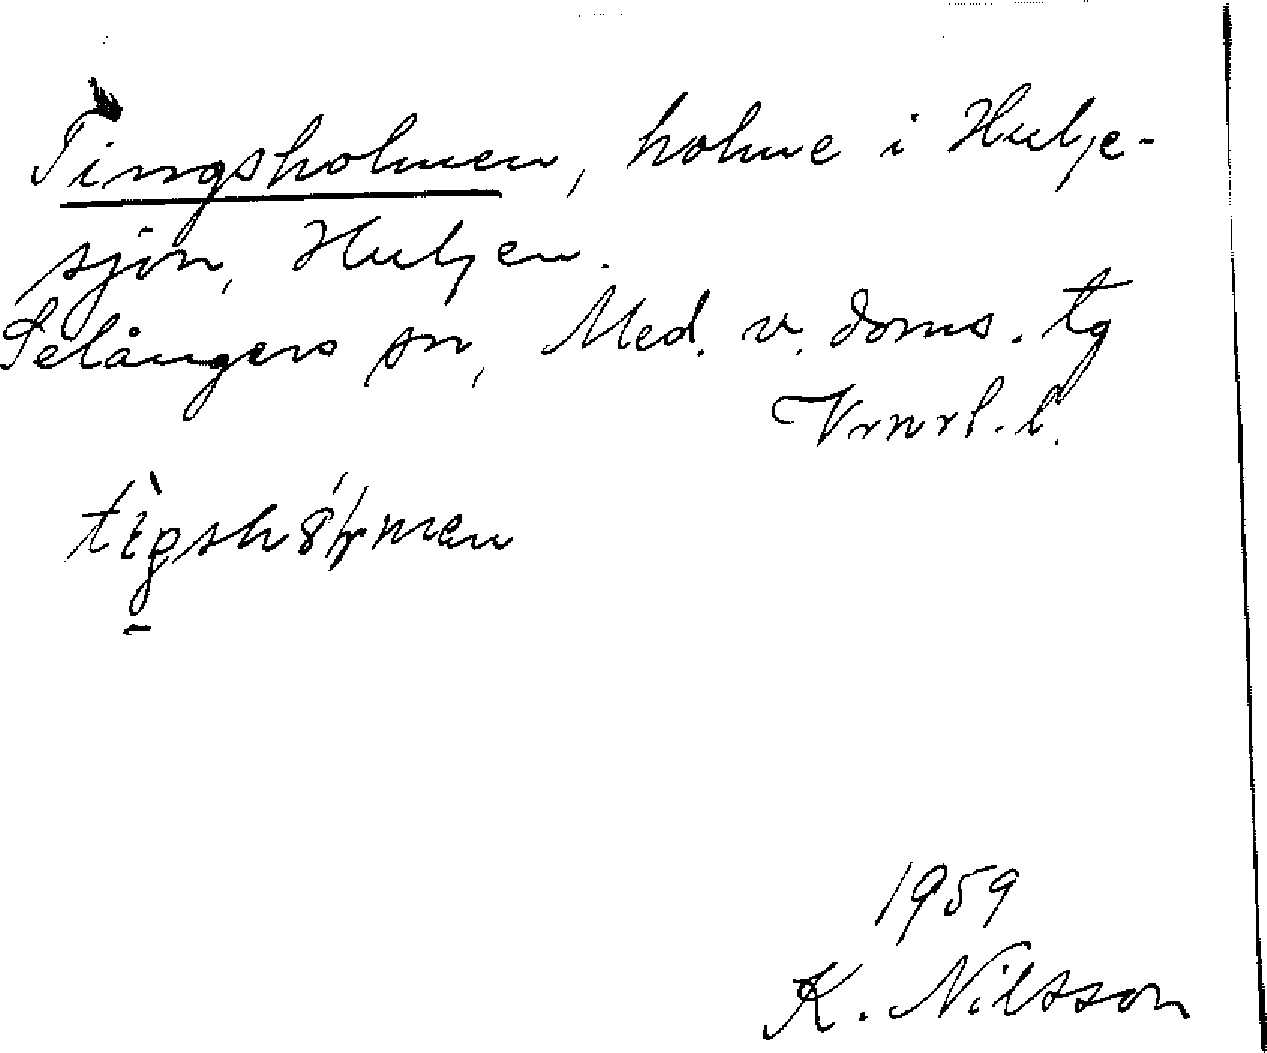 Tingsholmen, holme i Hulje-
sjön, Huljen.
Selångers sn, Med. v. doms. tg
Vrnrl. l.
1959
K. Nilsson